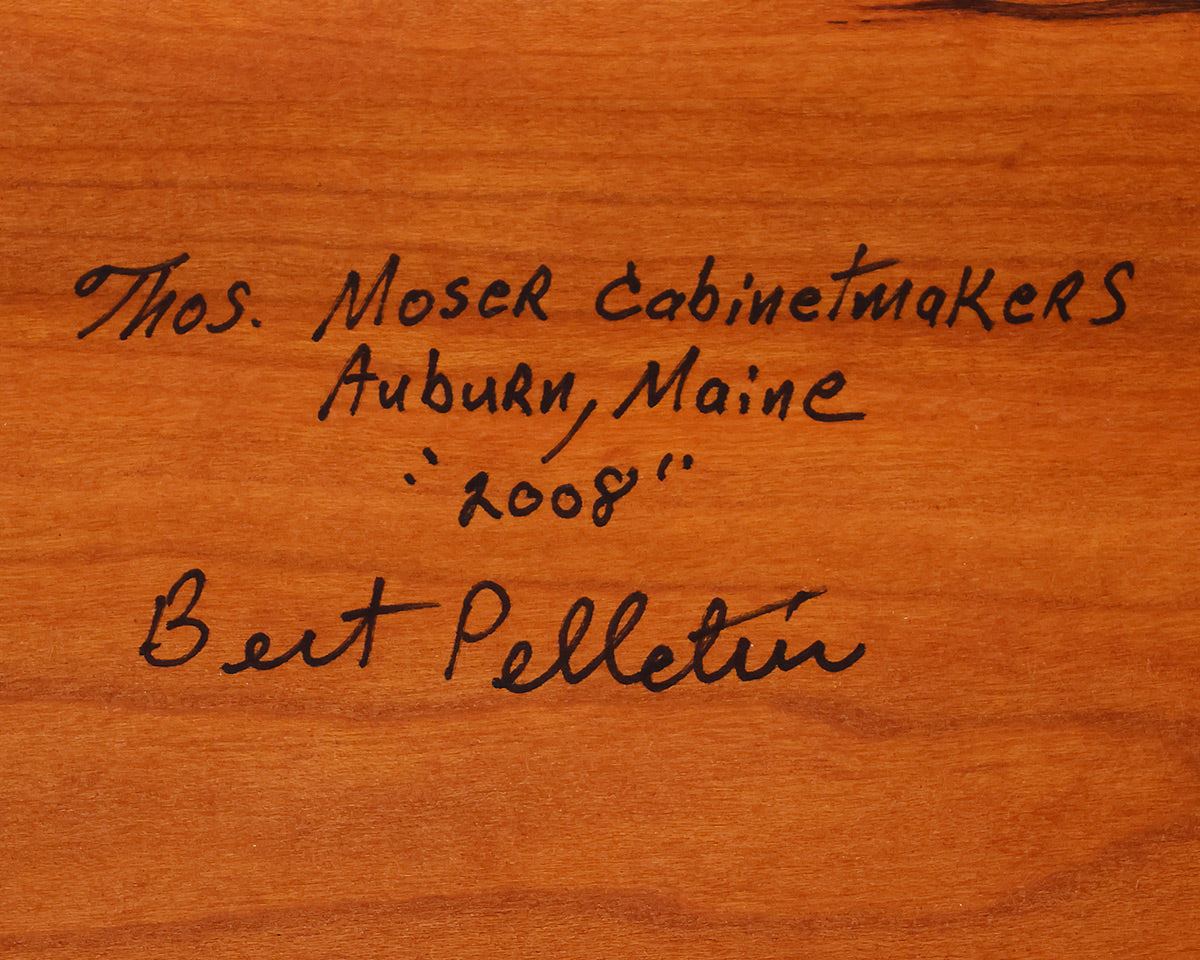 Thos. Moser Cabinetmakers
Auburn, Maine
"2008"
Bert Pelletier